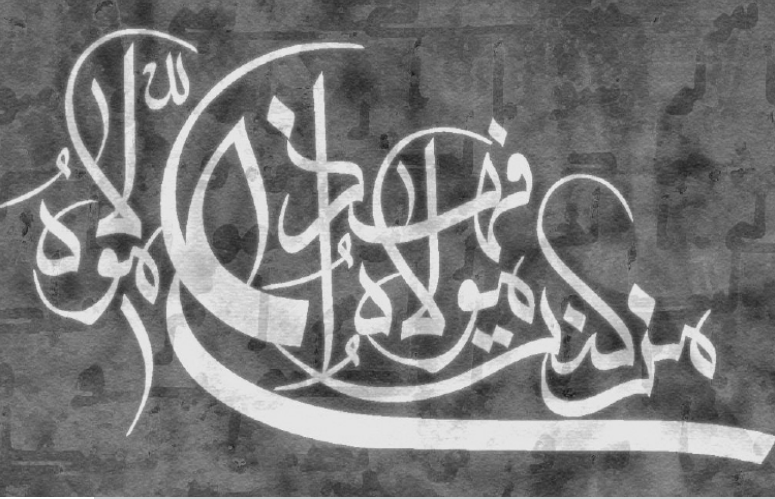 من كنت مولاه فهذا علي مولاه